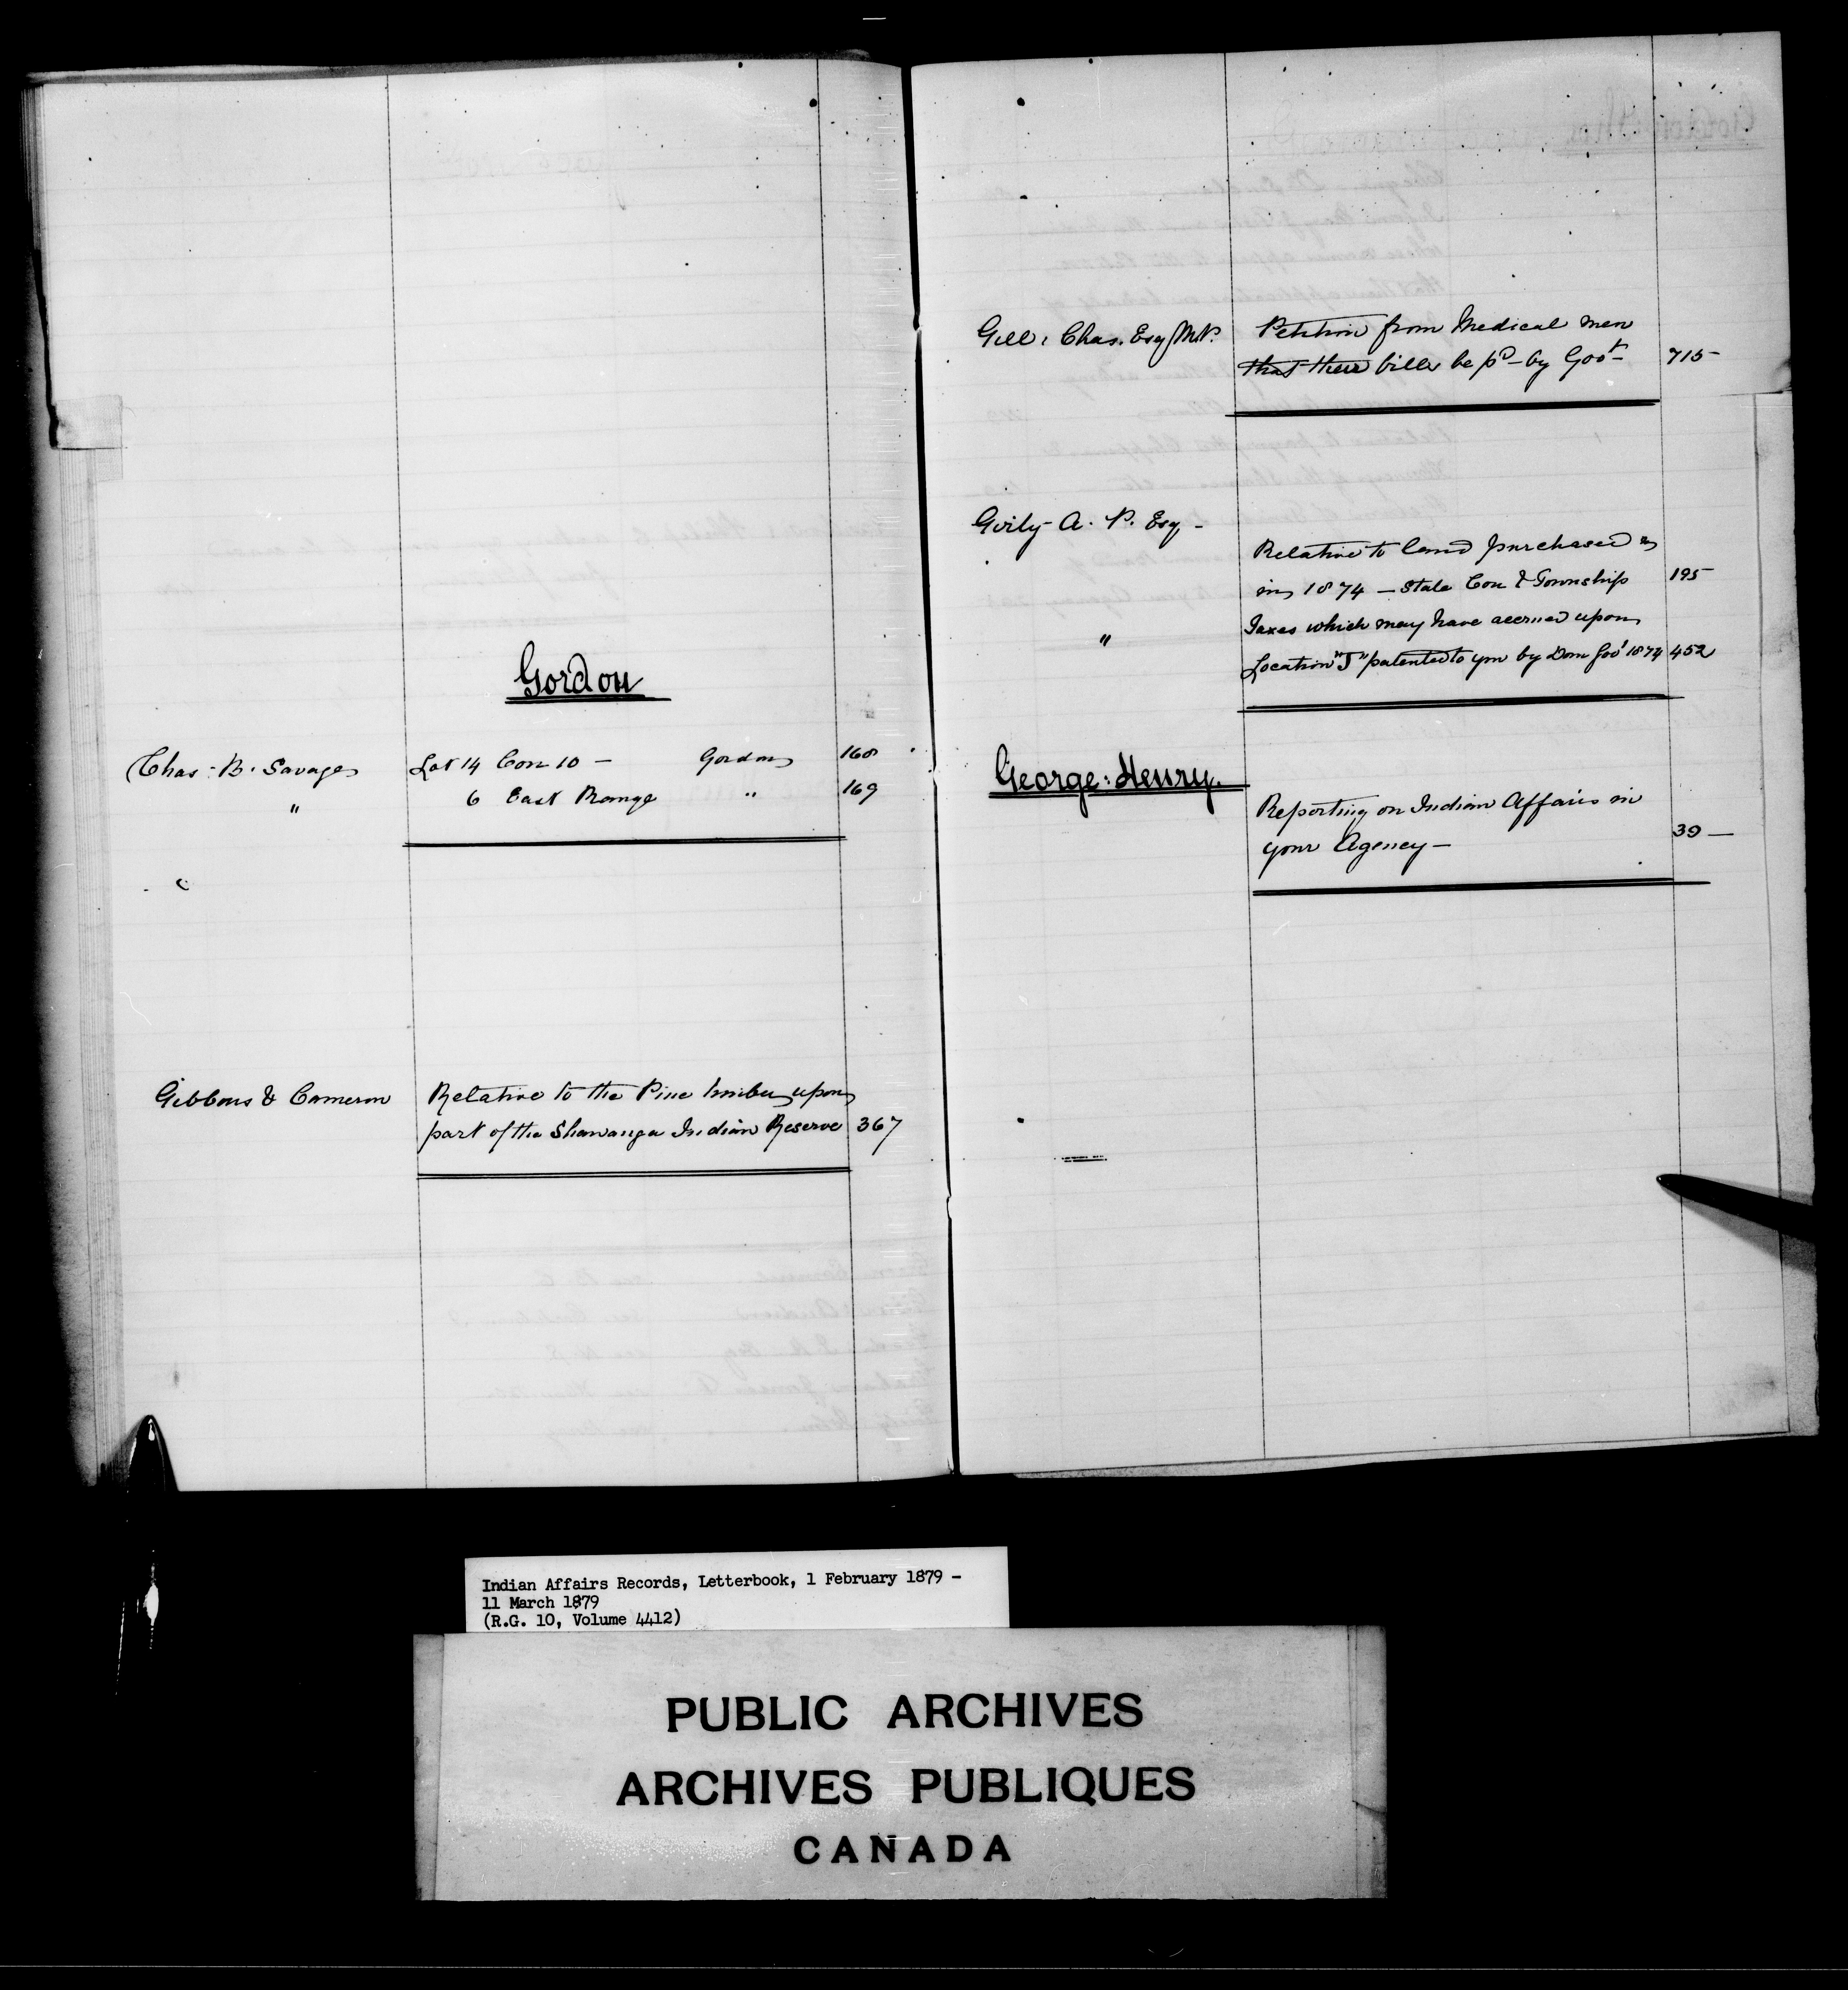 Gordon
Chas. B. Savage Lot 14 Con 10 — Gordon 168
" 6 East Range " 169
Gibbons & Cameron Relative to the Pine timber upon
part of the Shawanga Indian Reserve 367
Gill, Chas. Esq M.P. Petition from Medical men
that their bills be pd — by Govt — 715
A. P. Esq —
Relative to land purchased
in 1874 — State Con & Township 195
" Taxes which may have accrued upon
Location "J" patented to you by Dom Govt 1874 452
George Henry.
Reporting on Indian Affairs in
your Agency — 39 —
Indian Affairs Records, Letterbook, 1 February 1879 –
11 March 1879
(R.G. 10, Volume 4412)
PUBLIC ARCHIVES
ARCHIVES PUBLIQUES
CANADA